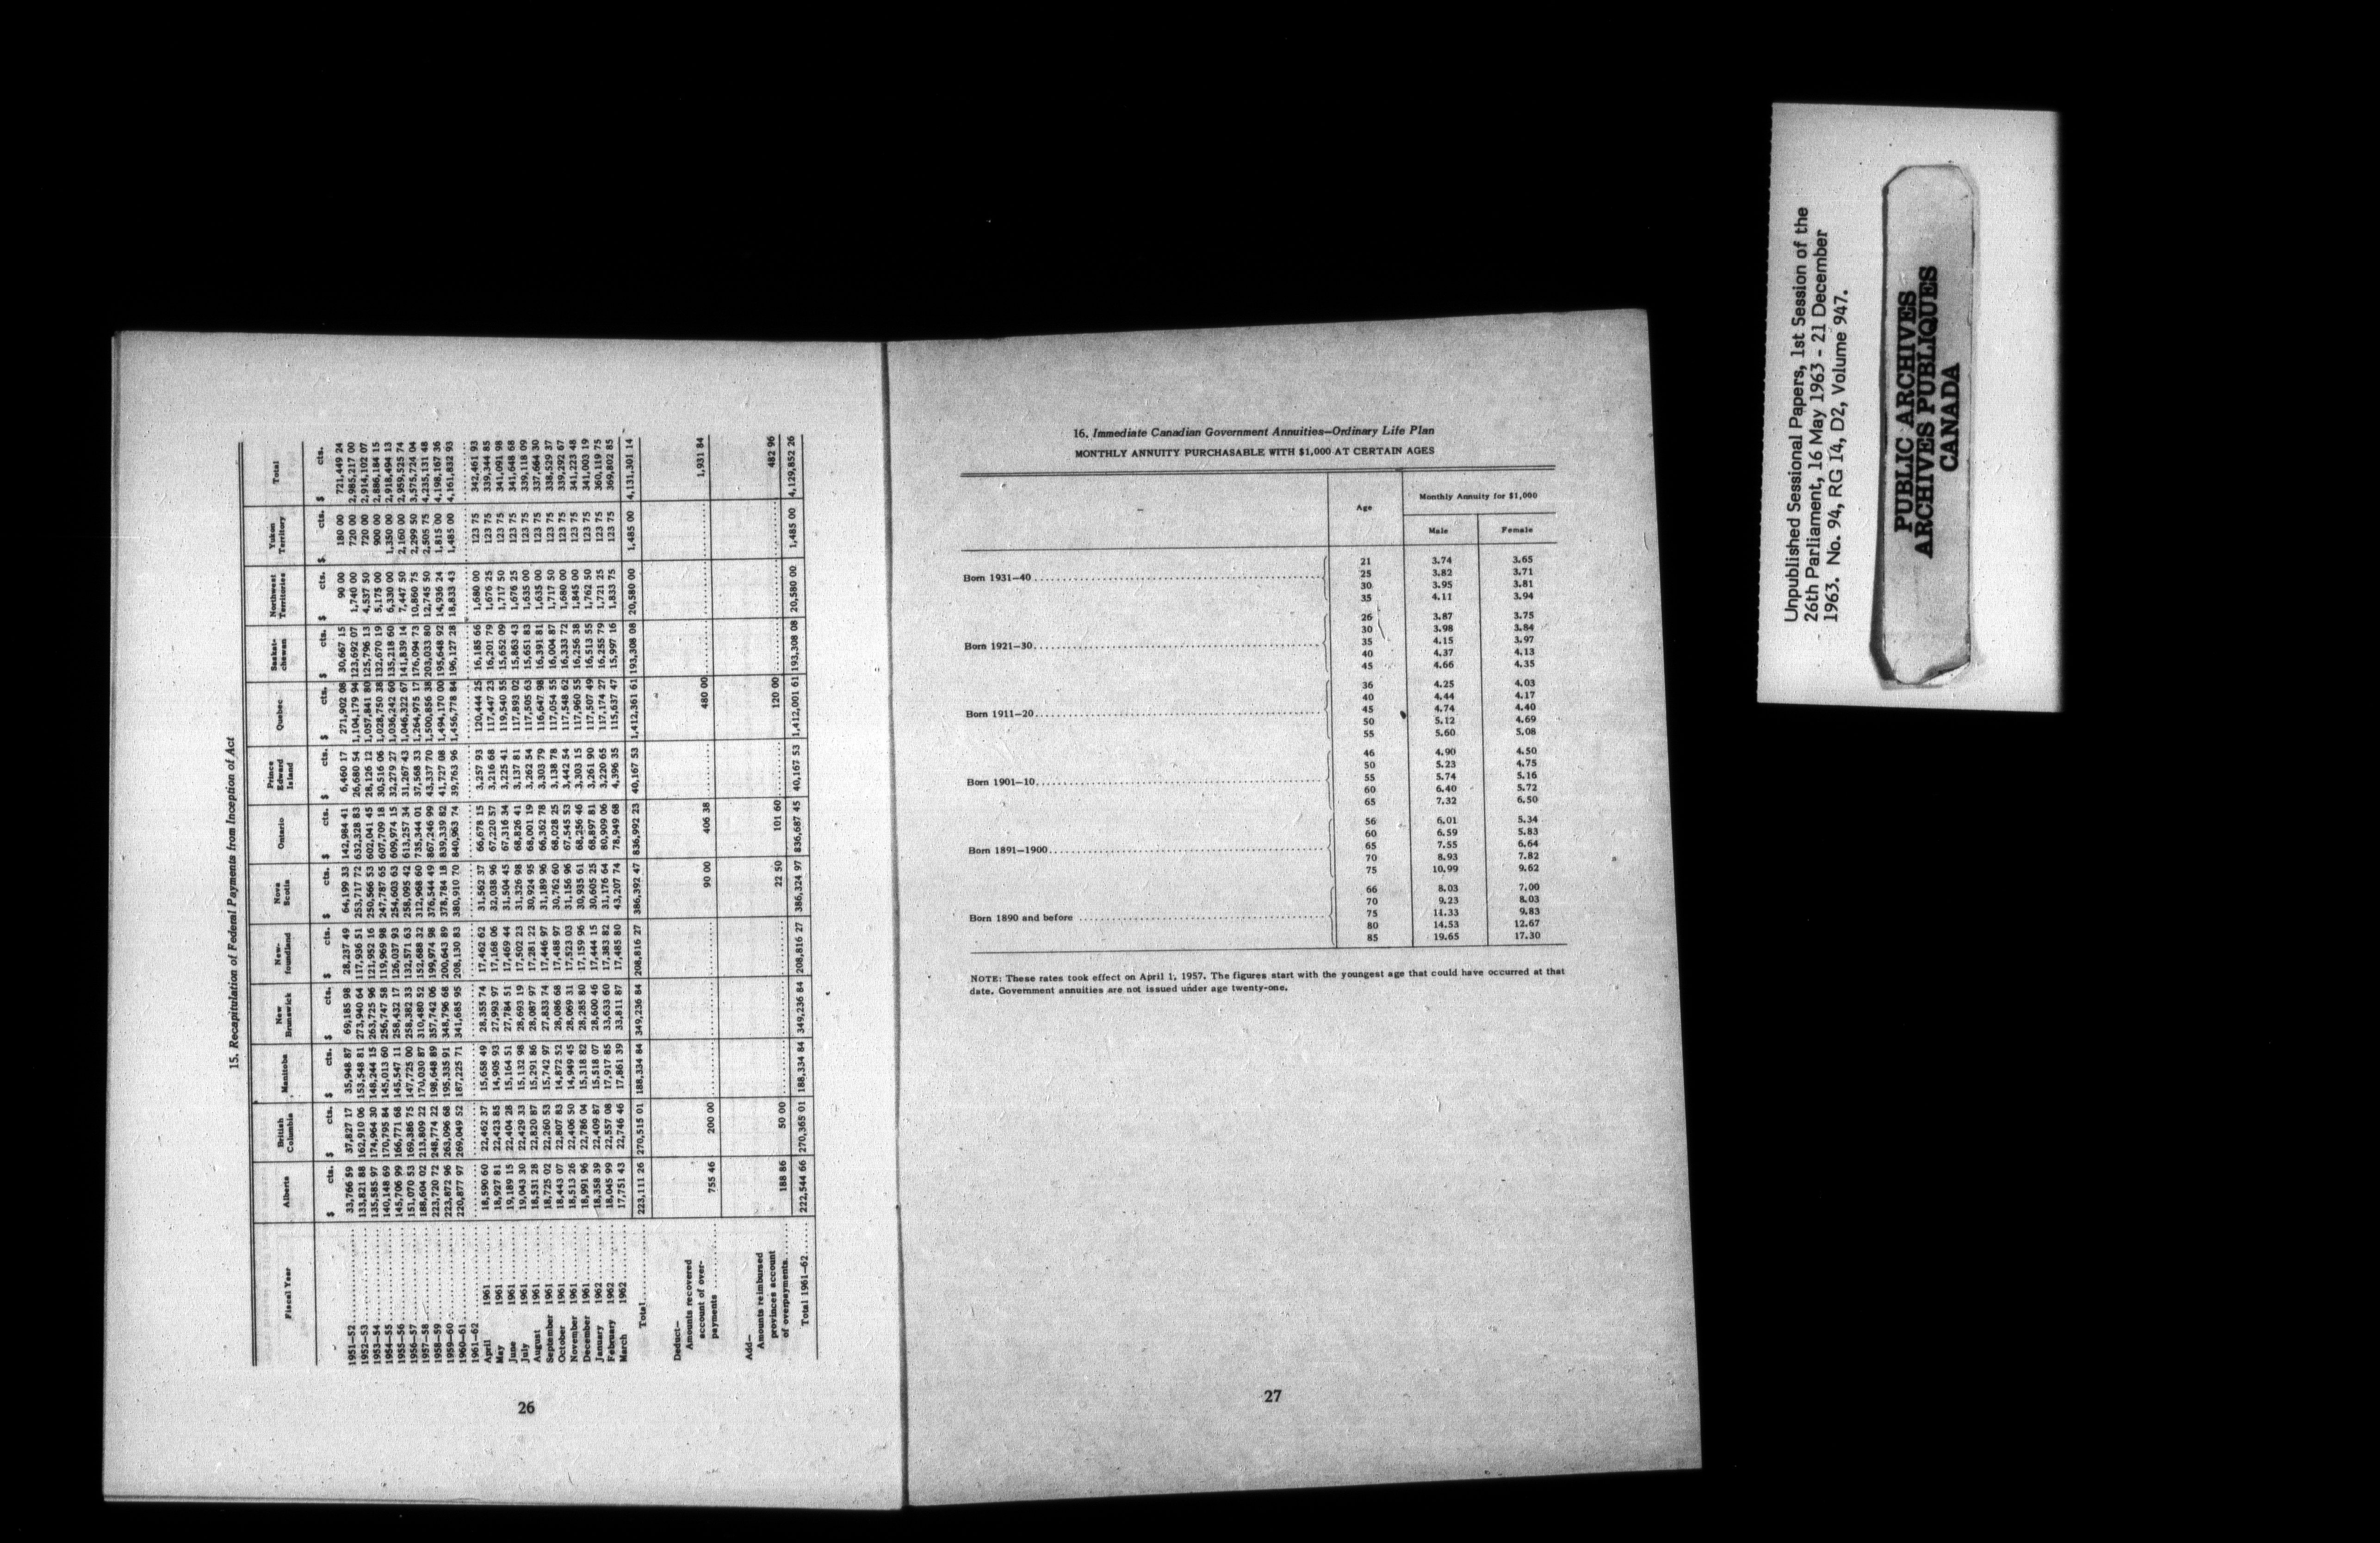 15. Recapitulation of Federal Payments from Inception of Act
Fiscal Year Alberta British Columbia Manitoba New Brunswick New-foundland Nova Scotia Ontario Prince Edward Island Quebec Saskat-chewan Northwest Territories Yukon Territory Total
$ cts. $ cts. $ cts. $ cts. $ cts. $ cts. $ cts. $ cts. $ cts. $ cts. $ cts. $ cts. $ cts.
1951–52 33,766 59 37,827 17 35,948 87 69,185 98 28,237 49 64,199 33 142,984 41 6,460 17 271,902 08 30,667 15 90 00 180 00 721,449 24
1952–53 133,821 88 162,910 06 153,548 81 273,940 64 117,936 51 253,717 72 632,328 83 26,680 54 1,104,179 94 123,692 07 1,740 00 720 00 2,985,217 00
1953–54 135,585 97 174,964 30 148,244 15 263,725 96 121,952 16 250,566 53 602,041 45 28,126 12 1,057,841 80 125,796 13 4,537 50 720 00 2,914,102 07
1954–55 140,148 69 170,795 84 145,013 60 256,747 58 119,969 98 247,787 65 607,709 18 30,516 06 1,028,750 38 132,670 19 5,175 00 900 00 2,886,184 15
1955–56 145,706 99 166,771 68 145,547 11 258,432 17 126,037 93 254,603 63 609,974 15 32,279 27 1,036,242 60 135,218 60 6,330 00 1,350 00 2,918,494 13
1956–57 151,070 53 169,386 75 147,725 00 258,382 33 132,571 63 258,095 42 613,257 34 31,267 43 1,046,322 67 141,839 14 7,447 50 2,160 00 2,959,525 74
1957–58 188,604 02 213,809 22 170,030 87 310,480 52 152,688 32 312,968 60 735,344 01 37,568 33 1,264,975 17 176,094 73 10,860 75 2,299 50 3,575,724 04
1958–59 223,720 72 248,774 22 198,648 89 357,742 06 199,974 98 376,544 49 867,246 99 43,337 70 1,500,856 38 203,033 80 12,745 50 2,505 75 4,235,131 48
1959–60 223,872 96 263,096 68 195,335 91 348,796 68 200,643 89 378,784 18 839,339 82 41,727 08 1,494,170 00 195,648 92 14,936 24 1,815 00 4,198,167 36
1960–61 220,877 97 269,049 52 187,225 71 341,685 95 208,130 83 380,910 70 840,963 74 39,763 96 1,456,778 84 196,127 28 18,833 43 1,485 00 4,161,832 93
1961–62
April 1961 18,590 60 22,462 37 15,658 49 28,355 74 17,462 62 31,562 37 66,678 15 3,257 93 120,444 25 16,185 66 1,680 00 123 75 342,461 93
May 1961 18,927 81 22,423 85 14,905 93 27,993 97 17,168 06 32,038 96 67,220 57 3,216 68 117,447 23 16,201 79 1,676 25 123 75 339,344 85
June 1961 19,189 15 22,404 28 15,164 51 27,784 51 17,469 44 31,504 45 67,316 34 3,225 41 119,540 55 15,652 09 1,717 50 123 75 341,091 98
July 1961 19,043 30 22,429 33 15,132 98 28,693 19 17,502 23 31,326 98 68,826 41 3,137 81 117,893 02 15,863 43 1,676 25 123 75 341,648 68
August 1961 18,531 28 22,820 87 15,291 86 28,087 97 17,281 22 30,924 95 68,001 19 3,262 54 117,505 63 15,651 83 1,635 00 123 75 339,118 09
September 1961 18,725 02 22,260 53 15,742 97 27,833 74 17,446 97 31,189 96 66,362 78 3,303 79 116,647 98 16,391 81 1,635 00 123 75 337,664 30
October 1961 18,443 07 22,807 83 14,872 52 28,086 68 17,488 97 30,762 60 68,028 25 3,138 78 117,054 55 16,004 87 1,717 50 123 75 338,529 37
November 1961 18,513 26 22,406 50 14,949 45 28,069 31 17,523 03 31,156 96 67,545 53 3,442 54 117,548 62 16,333 72 1,680 00 123 75 339,292 67
December 1961 18,991 96 22,786 04 15,318 82 28,285 80 17,159 96 30,935 61 68,256 46 3,303 15 117,960 55 16,256 38 1,845 00 123 75 341,223 48
January 1962 18,358 39 22,409 87 15,518 07 28,600 46 17,444 15 30,605 25 68,897 81 3,261 90 117,507 49 16,513 55 1,762 50 123 75 341,003 19
February 1962 18,045 99 22,557 08 17,917 85 33,633 60 17,383 82 31,176 64 80,909 06 3,220 65 117,174 27 16,255 79 1,721 25 123 75 360,119 75
March 1962 17,751 43 22,746 46 17,861 39 33,811 87 17,485 80 43,207 74 78,949 68 4,396 35 115,637 47 15,997 16 1,833 75 123 75 369,802 85
Total 223,111 26 270,515 01 188,334 84 349,236 84 208,816 27 386,392 47 836,992 23 40,167 53 1,412,361 61 193,308 08 20,580 00 1,485 00 4,131,301 14
Deduct—
Amounts recovered
account of over-
payments 755 46 200 00 90 00 406 38 480 00 1,931 84
Add—
Amounts reimbursed
provinces account
of overpayments 188 86 50 00 22 50 101 60 120 00 482 96
Total 1961–62 222,544 66 270,365 01 188,334 84 349,236 84 208,816 27 386,324 97 836,687 45 40,167 53 1,412,001 61 193,308 08 20,580 00 1,485 00 4,129,852 26
26
16. Immediate Canadian Government Annuities—Ordinary Life Plan
MONTHLY ANNUITY PURCHASABLE WITH $1,000 AT CERTAIN AGES
Age Monthly Annuity for $1,000
Male Female
21 3.74 3.65
Born 1931–40 25 3.82 3.71
30 3.95 3.81
35 4.11 3.94
26 3.87 3.75
30 3.98 3.84
Born 1921–30 35 4.15 3.97
40 4.37 4.13
45 4.66 4.35
36 4.25 4.03
40 4.44 4.17
Born 1911–20 45 4.74 4.40
50 5.12 4.69
55 5.60 5.08
46 4.90 4.50
50 5.23 4.75
Born 1901–10 55 5.74 5.16
60 6.40 5.72
65 7.32 6.50
56 6.01 5.34
60 6.59 5.83
Born 1891–1900 65 7.55 6.64
70 8.93 7.82
75 10.99 9.62
66 8.03 7.00
70 9.23 8.03
Born 1890 and before 75 11.33 9.83
80 14.53 12.67
85 19.65 17.30
NOTE: These rates took effect on April 1, 1957. The figures start with the youngest age that could have occurred at that
date. Government annuities are not issued under age twenty-one.
27
Unpublished Sessional Papers, 1st Session of the
26th Parliament, 16 May 1963 - 21 December
1963. No. 94, RG 14, D2, Volume 947.
PUBLIC ARCHIVES
ARCHIVES PUBLIQUES
CANADA